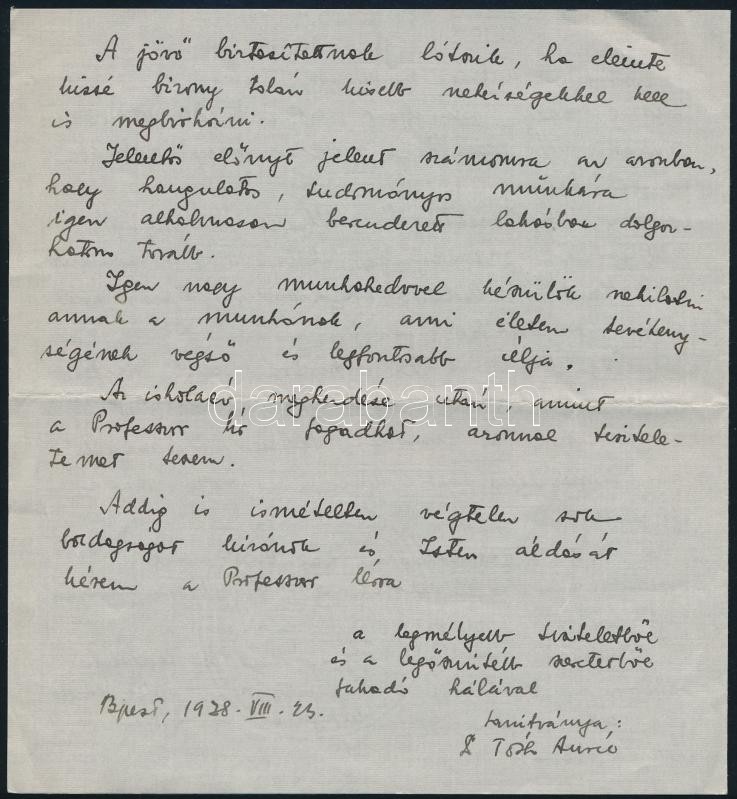 A jövő biztosítottnak látszik, ha eleinte
kissé bizony talán kisebb nehézségekkel kell
is megbirkózni.
Jelentős előnyt jelent számomra az azonban,
hogy hangulatos, tudományos munkára
igen alkalmasan berendezett lakásban dolgoz-
hatom tovább.
Igen nagy munkakedvvel készülök nekilátni
annak a munkának, ami életem tevékeny-
ségének végső és legfontosabb célja.
Az iskolaév megkezdése után, amint
a Professor Úr fogadhat, azonnal tisztele-
temet teszem.
darabanth
Addig is ismételten végtelen sok
boldogságot kívánok és Isten áldását
kérem a Professor Úrra
a legmélyebb tiszteletből
és a legőszintébb szeretetből
fakadó hálával
Bpest, 1928. VIII. 23.
tanítványa:
Dr Tóth Aurél